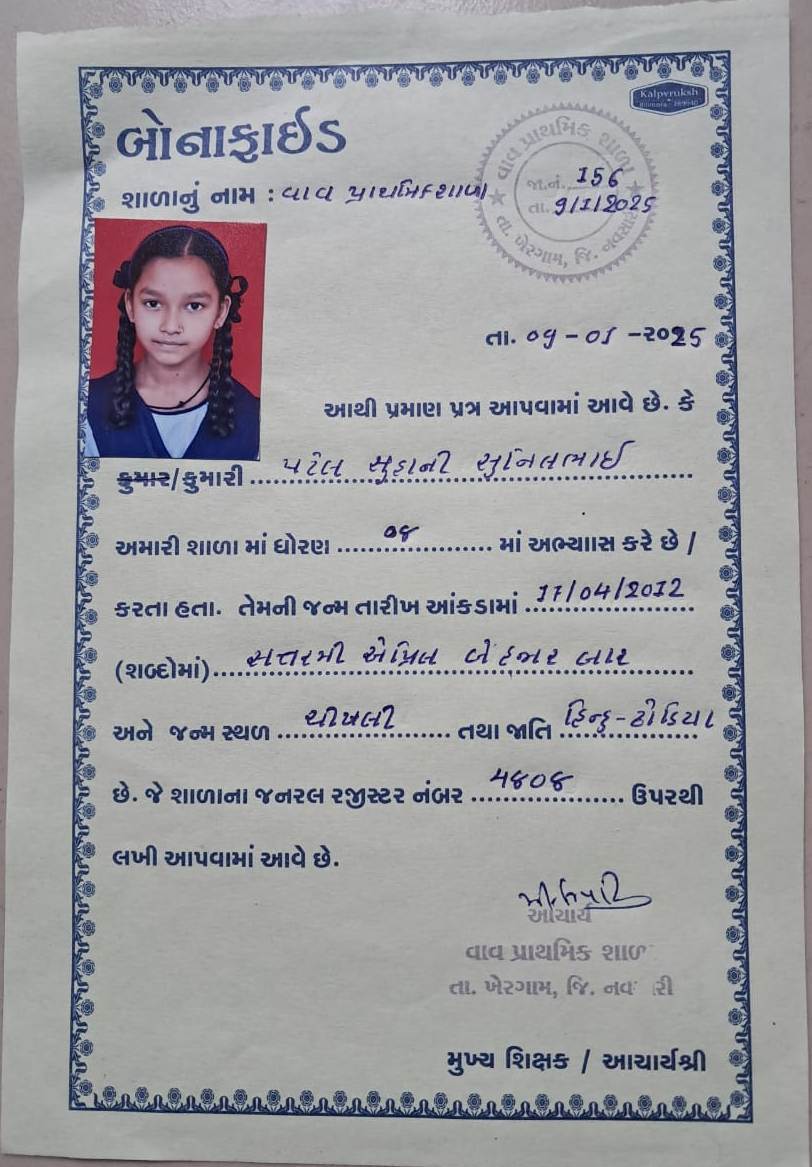 Kalpvruksh
બોનાફાઈડ
શાળાનું નામ : વાવ પ્રાથમિક શાળા
વાવ પ્રાથમિક શાળા
જા.નં. 156
તા. 9/1/2025
તા. ખેરગામ, જિ. નવસારી
તા. 09-01-૨૦25
આથી પ્રમાણ પત્ર આપવામાં આવે છે. કે
કુમાર/કુમારી પટેલ સુહાની સુનિલભાઈ
અમારી શાળા માં ધોરણ ૦૪ માં અભ્યાસ કરે છે /
કરતા હતા. તેમની જન્મ તારીખ આંકડામાં 17/04/2012
(શબ્દોમાં) સત્તરમી એપ્રિલ બે હજાર બાર
અને જન્મ સ્થળ ચીખલી તથા જાતિ હિન્દુ-ઢોડિયા
છે. જે શાળાના જનરલ રજીસ્ટર નંબર ૪૪૦૪ ઉપરથી
લખી આપવામાં આવે છે.
આચાર્ય
વાવ પ્રાથમિક શાળ
તા. ખેરગામ, જિ. નવ રી
મુખ્ય શિક્ષક / આચાર્યશ્રી